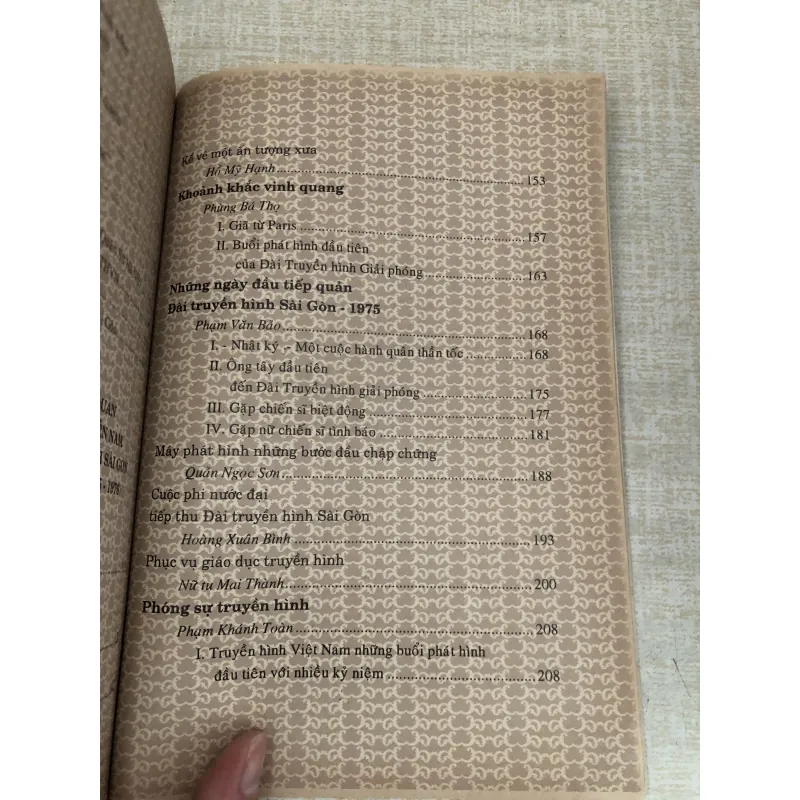 Kể về một ấn tượng xưa
Hồ Mỹ Hạnh 153
Khoảnh khắc vinh quang
Phùng Bá Thọ
I. Giã từ Paris 157
II. Buổi phát hình đầu tiên
của Đài Truyền hình Giải phóng 163
Những ngày đầu tiếp quản
Đài truyền hình Sài Gòn - 1975
Phạm Văn Bảo 168
I. - Nhật ký - Một cuộc hành quân thần tốc 168
II. Ông tây đầu tiên
đến Đài Truyền hình giải phóng 175
III. Gặp chiến sĩ biệt động 177
IV. Gặp nữ chiến sĩ tình báo 181
Máy phát hình những bước đầu chập chững
Quản Ngọc Sơn 188
Cuộc phi nước đại
tiếp thu Đài truyền hình Sài Gòn
Hoàng Xuân Bình 193
Phục vụ giáo dục truyền hình
Nữ tu Mai Thành 200
Phóng sự truyền hình
Phạm Khánh Toàn 208
I. Truyền hình Việt Nam những buổi phát hình
đầu tiên với nhiều kỷ niệm 208
NAM
SÀI GÒN
1976